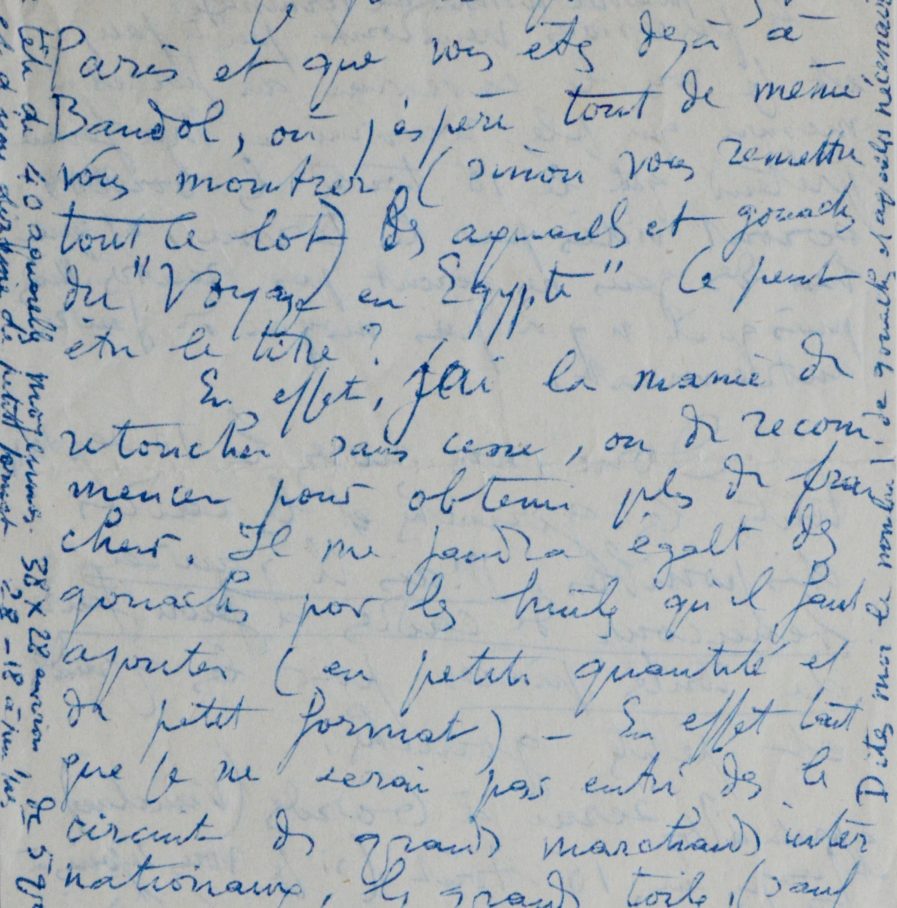 Paris et que vous êtes déjà à
Bandol, où j'espère tout de même
vous montrer (sinon vous remettre
tout le lot) les aquarells et gouachs
du "Voyage en Egypte" Ce peut
être le titre ?
En effet, j'ai la manie de
retoucher sans cesse, ou de recom
mencer pour obtenir plus de fraî
cheur. Il me faudra égalt des
gouachs por les huiles qu'il faut
ajouter (en petite quantité et
de petit format) - En effet tant
que je ne serai pas entré ds le
circuit des grands marchands inter
nationaux, les grands toiles, (sauf
40 aquarells moyennes 38 x 28 environ, de 5
de petit format 28 - 18 à
Dites moi le nombre de gouachs et aquarells nécessaires